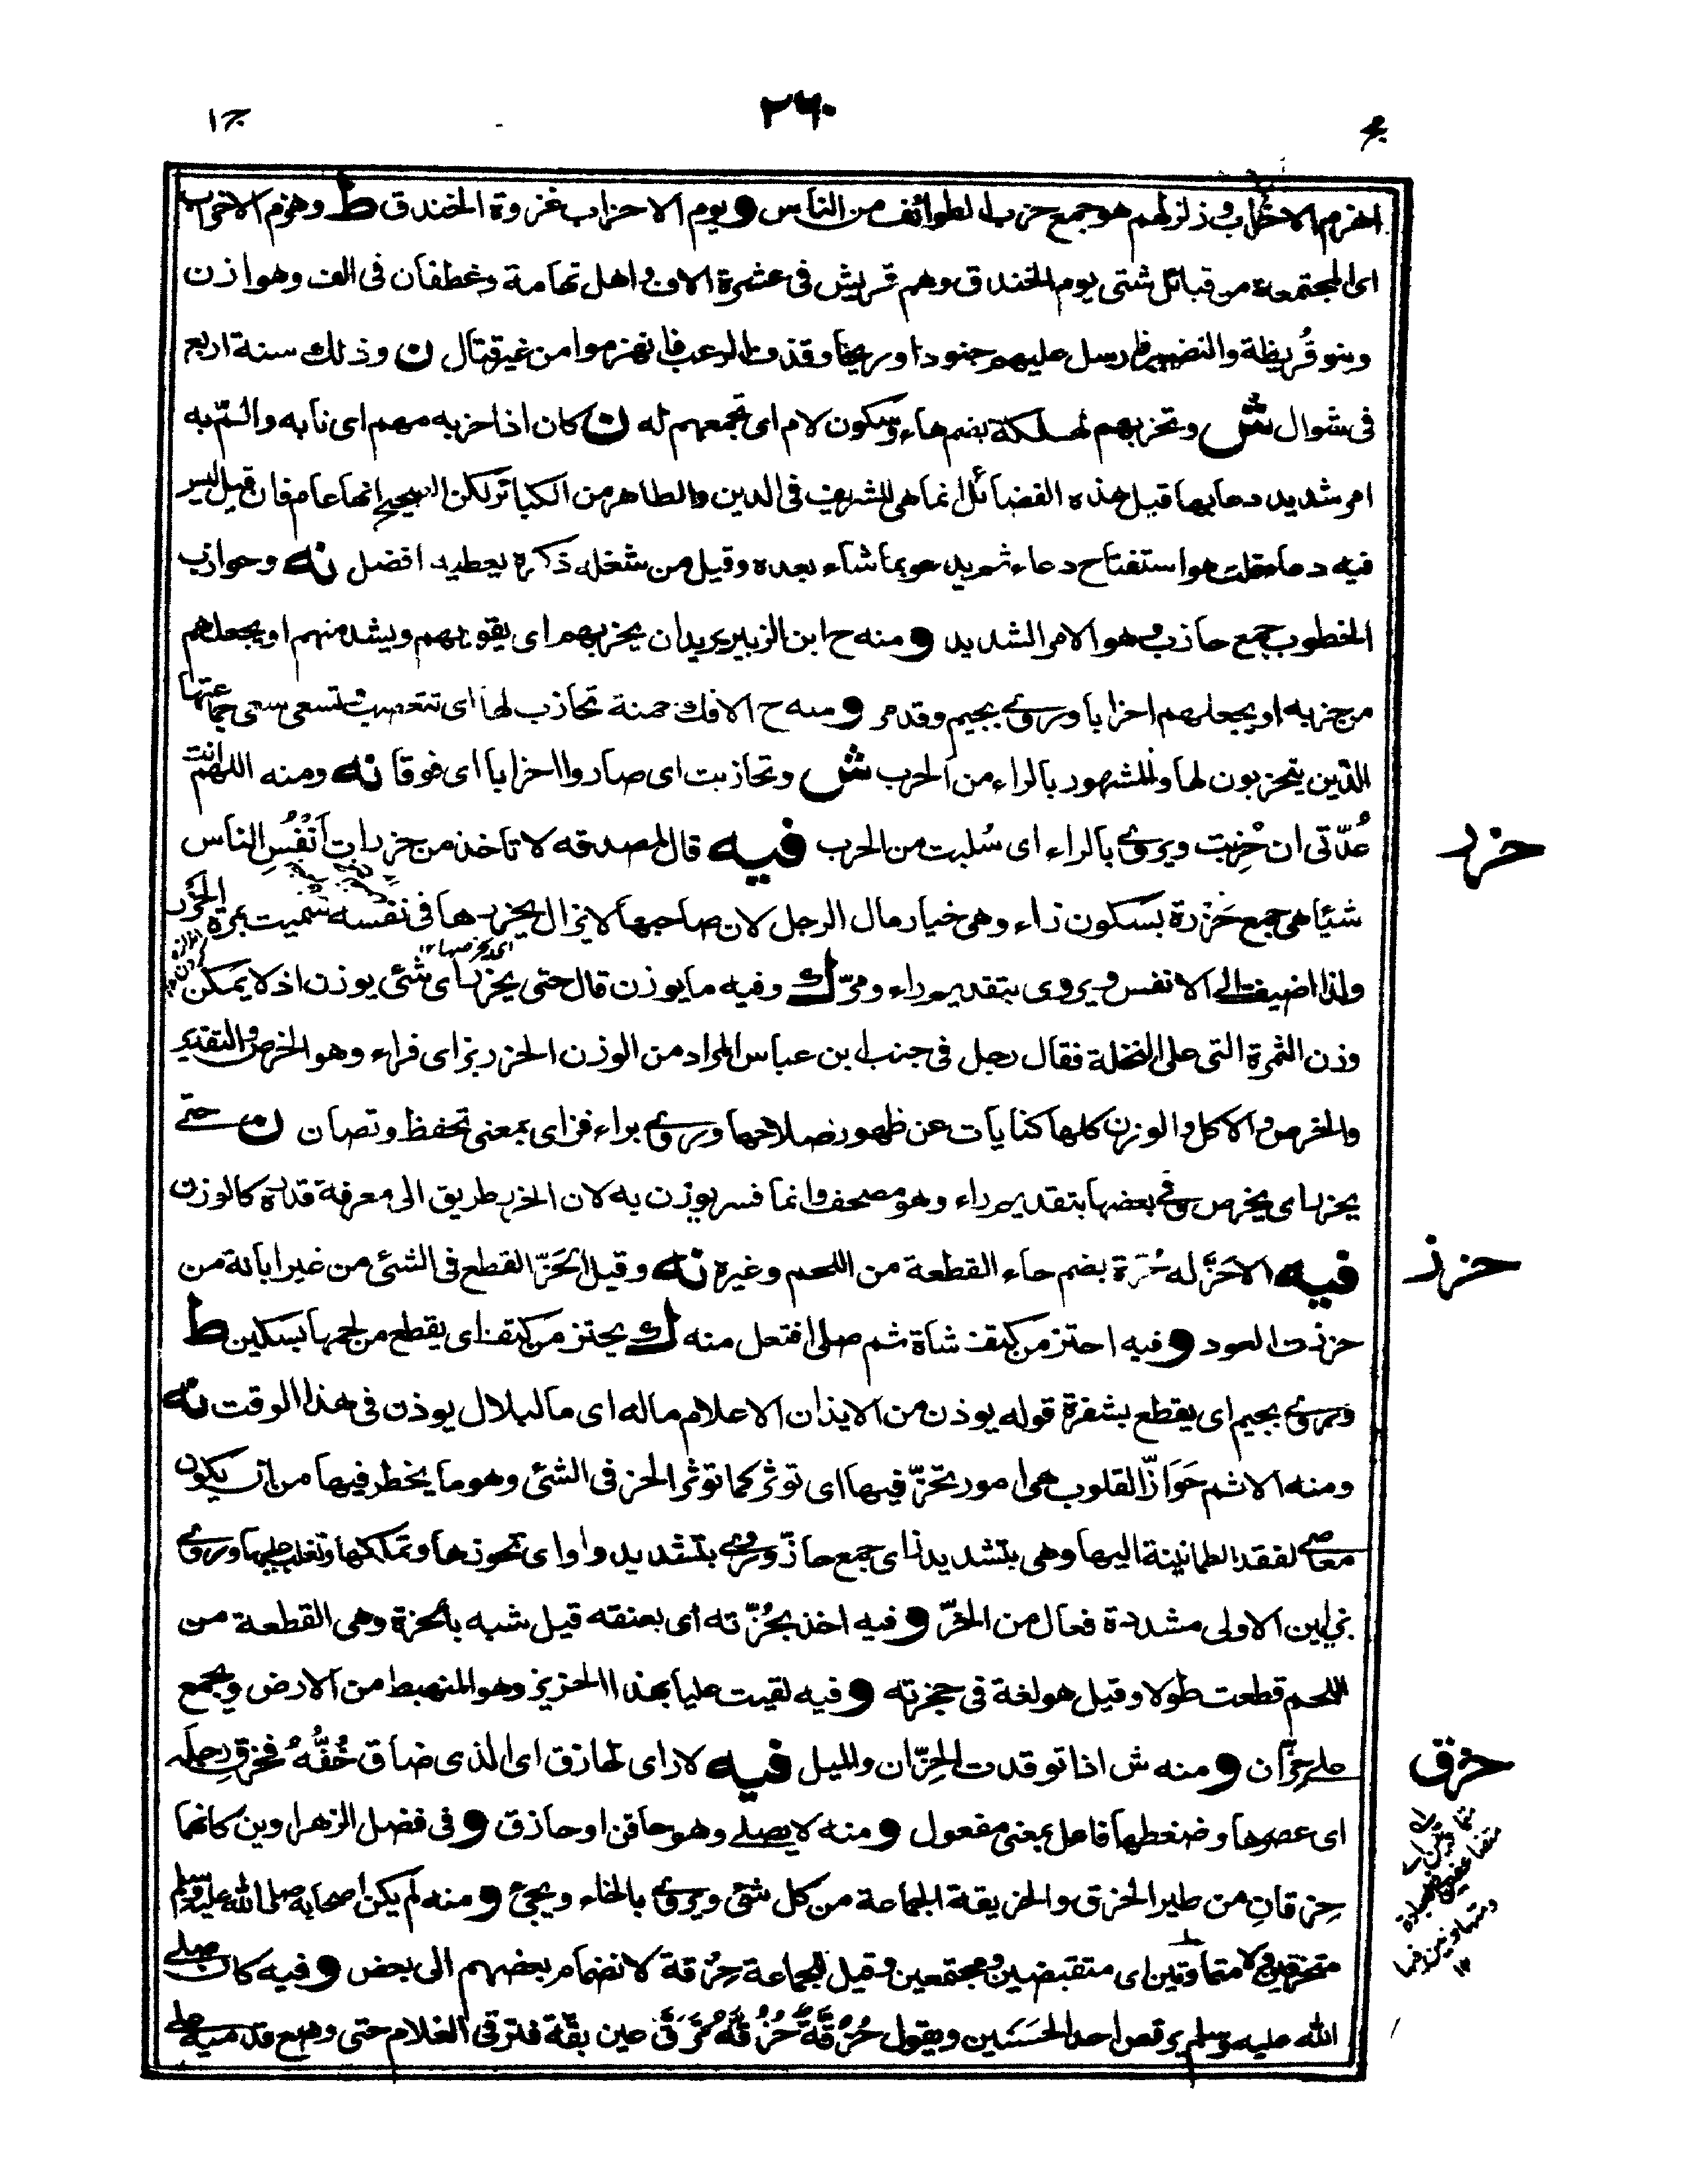 مجـ ٢٦٠ ج ١
اهزم الاحزاب وزلزلهم هو جمع حزب الطوائف من الناس و يوم الاحزاب غزوة الخندق ط وهزم الاحزاب
اى المجتمعة من قبائل شتى يوم الخندق وهم قريش فى عشرة الاف واهل تهامة وغطفان فى الف وهوازن
وبنو قُريظة والنضير فارسل عليهم جنودا وريحا وقذف الرعب فانهزموا من غير قتال ن وذلك سنة اربع
فى شوال ش وتحزبهم لهلكة بضم هاء وسكون لام اى تجمعهم له ن كان اذا حزبه مهم اى نابه والمّ به
امر شديد دعا بها قيل هذه الفضائل انما هى للشريف فى الدين والطاهر من الكبائر لكن الصحيح انها عام فان قيل ليس
فيه دعاء قلت هو استفتاح دعاء ثم يدعو بما شاء بعده وقيل من شغله ذكره يعطيه افضل نه وحوازب
الخطوب جمع حازب وهو الامر الشديد و منه ح ابن الزبير يريد ان يحزبهم اى يقوبهم ويشد منهم او يجعلهم
من حزبه او يجعلهم احزابا وروى بجيم وقدمر و منه ح الافك حمنة تحازب لها اى تتعصب تسعى سعى جماعتها
الذين يتحزبون لها والمشهور بالراء من الحرب ش وتحازبت اى صاروا احزابا اى فرقا نه ومنه اللهم انت
عُدّتى ان حُزِبت ويروى بالراء اى سُلبت من الحرب فيه قال لمصدقه لا تاخذ من حزرات اَنْفُسِ الناس
حزر
شيئا هى جمع حَزْرة بسكون زاء وهى خيار مال الرجل لان صاحبها لا يزال يحزرها فى نفسه سميت بمرة الحَزْر
اى يخرصها ١٢
ولذا اضيفت الى الانفس ويروى بتقديم راء ومرّ ك وفيه ما يوزن قال حتى يحزر اى شئ يوزن اذ لا يمكن
وزن الثمرة التى على النخلة فقال رجل فى جنب ابن عباس المراد من الوزن الحزر بزاى فراء وهو الخرص والتقدير
والخرص والاكل والوزن كلها كنايات عن ظهور صلاحها وروى براء فزاى بمعنى تحفظ وتصان ن حتى
يحزر اى يخرص وفى بعضها بتقديم راء وهو مصحف وانما فسر يوزن به لان الحزر طريق الى معرفة قدره كالوزن
فيه الا حَزَّ له حُزّة بضم حاء القطعة من اللحم وغيره نه وقيل الحَزّ القطع فى الشئ من غير ابانة من
حزز
حززت العود و فيه احتز من كتف شاة ثم صلى افتعل منه ك يحتز من كتف اى يقطع من لحمها بسكين ط
وروى بجيم اى يقطع بشفرة قوله يوذن من الايذان الاعلام ماله اى ما لبلال يوذن فى هذا الوقت نه
ومنه الاثم حَوَازّ القلوب هى امور تحزّ فيها اى توثر كما توثر الحز فى الشئ وهو ما يخطر فيها من ان يكون
معاصى لفقد الطمانينة اليها وهى بتشديد زاى جمع حازّ وروى بتشديد واو اى تحوزها وتملكها وتغلب عليها وروى
بزايين الاولى مشددة فعال من الحَزّ و فيه اخذ بحُزّته اى بعنقه قيل شبه بالحزة وهى القطعة من
اللحم قطعت طولا وقيل هو لغة فى حجزته و فيه لقيت عليا بهذا الحزيز وهو المنهبط من الارض ويجمع
على حزّان و منه ش اذا توقدت الحِزّان والميل فيه لا راى لحازق اى الذى ضاق خُفُّهُ فحزق رجله
حزق
اى عصرها وضغطها فاعل بمعنى مفعول و منه لا يصلى وهو حاقن او حازق و فى فضل الزهراوين كانهما
حِزقانِ من طير الحزق والحزيقة الجماعة من كل شئ ويروى بالخاء ويجئ و منه لم يكن اصحابه صلى الله عليه وسلم
متحزقين ولا متماوتين اى متقبضين ومجتمعين وقيل للجماعة حِزْقة لانضمام بعضهم الى بعض و فيه كان صلى
الله عليه وسلم يرقص احد الحسَنَين ويقول حُزُقَّةٌ حُزُقَّةٌ تَرَقَّ عين بقّة فترقى الغلام حتى وضع قدميه على